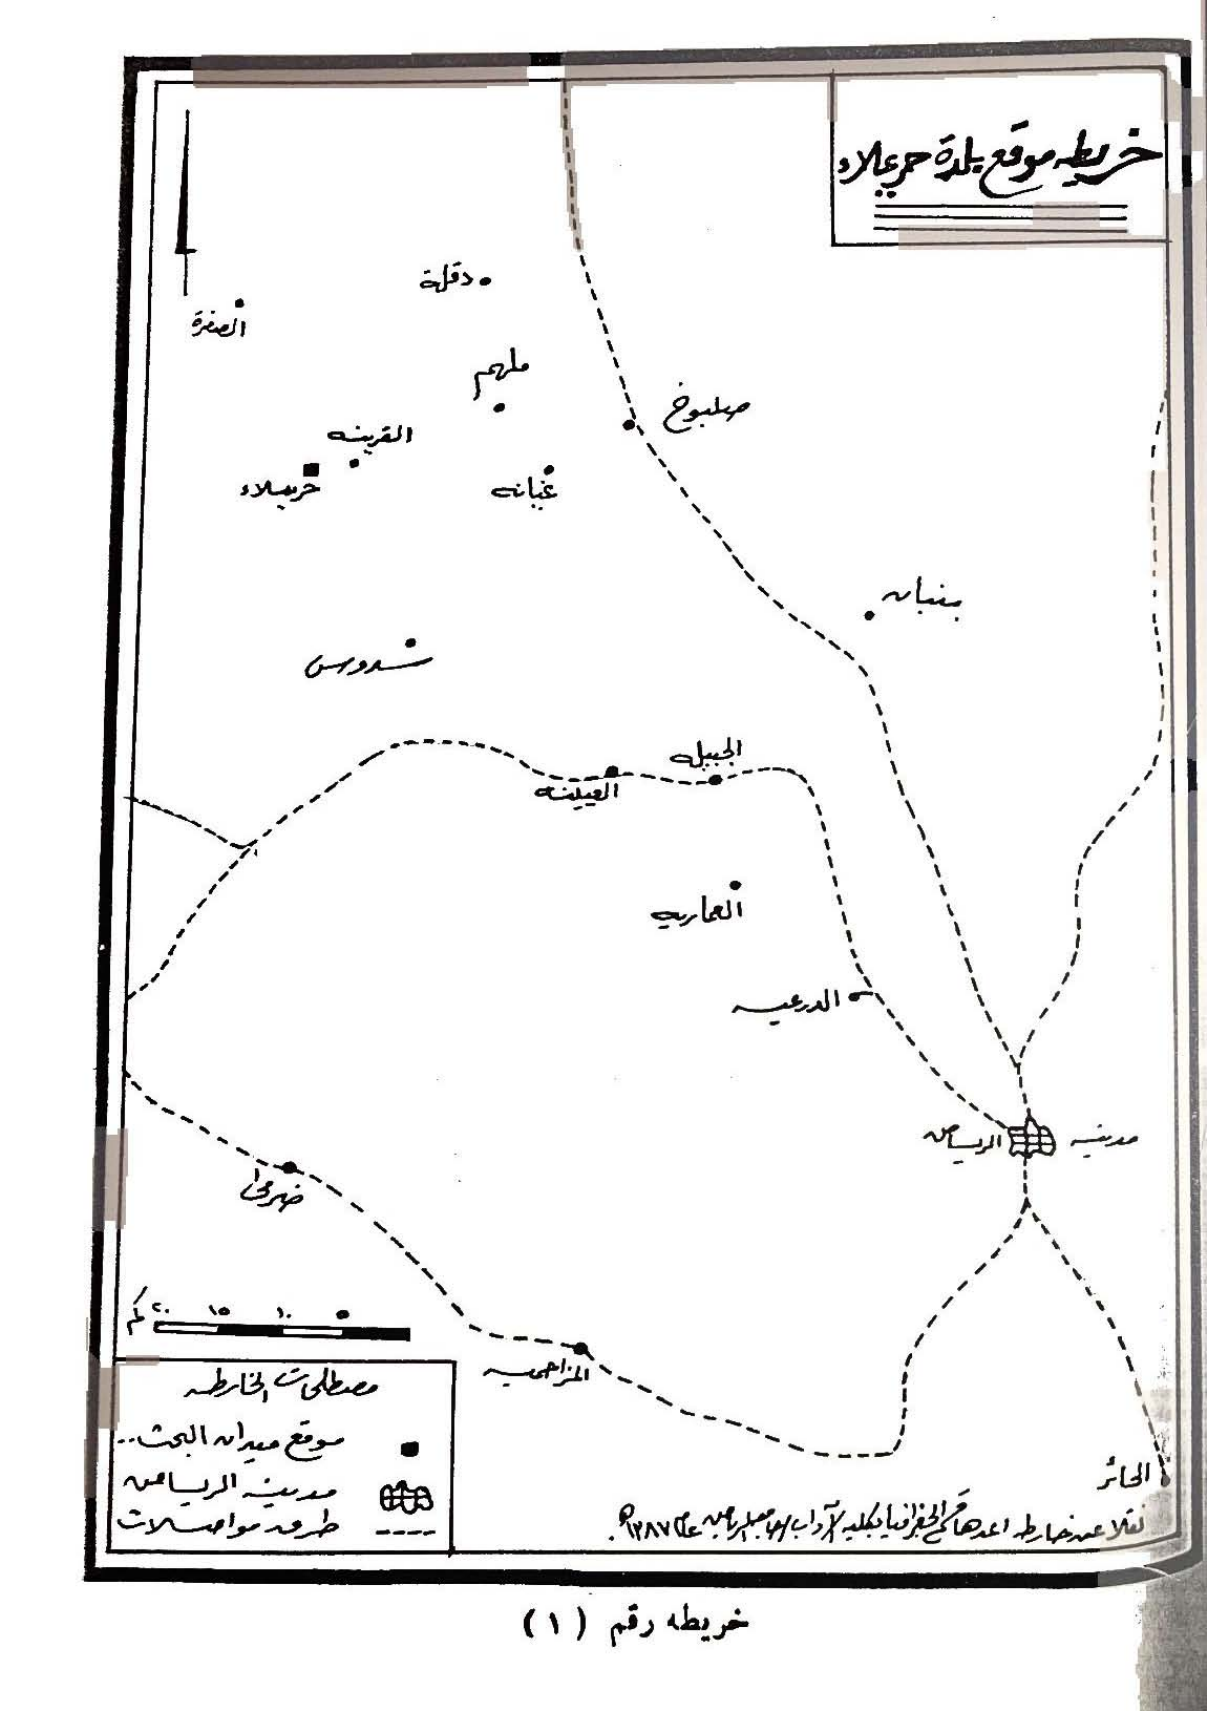 خريطه موقع بلدة حريملاء
دقلة
الصفرة
ملهم
صلبوخ
القرينه
حريملاء
غيانه
بنبان
سدوس
الجبيله
العيينه
العماريه
الدرعيه
مدينه الرياض
ضرمى
٢٠ ١٥ ١٠ ٥
كم
المزاحميه
مصطلحات الخارطه
موقع ميدان البحث..
مدينه الرياض
طرق مواصلات
الحائر
نقلا عن خارطه اعدها قسم الجغرافيا بكليه الآداب جامعه الرياض عام ١٣٨٧هـ.
خريطه رقم (١)